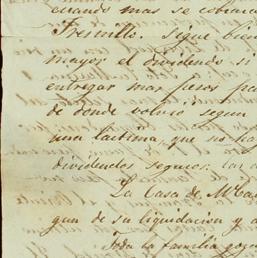 cuando mas se cobran
Fresnillo. Sigue bien
mayor el dividendo si
entregar mas pesos pa
de donde volvió segun
una lastima, que no ha
dividendos seguros. Las a
La Casa de
gun de su liquidacion y a
Toda la familia goza